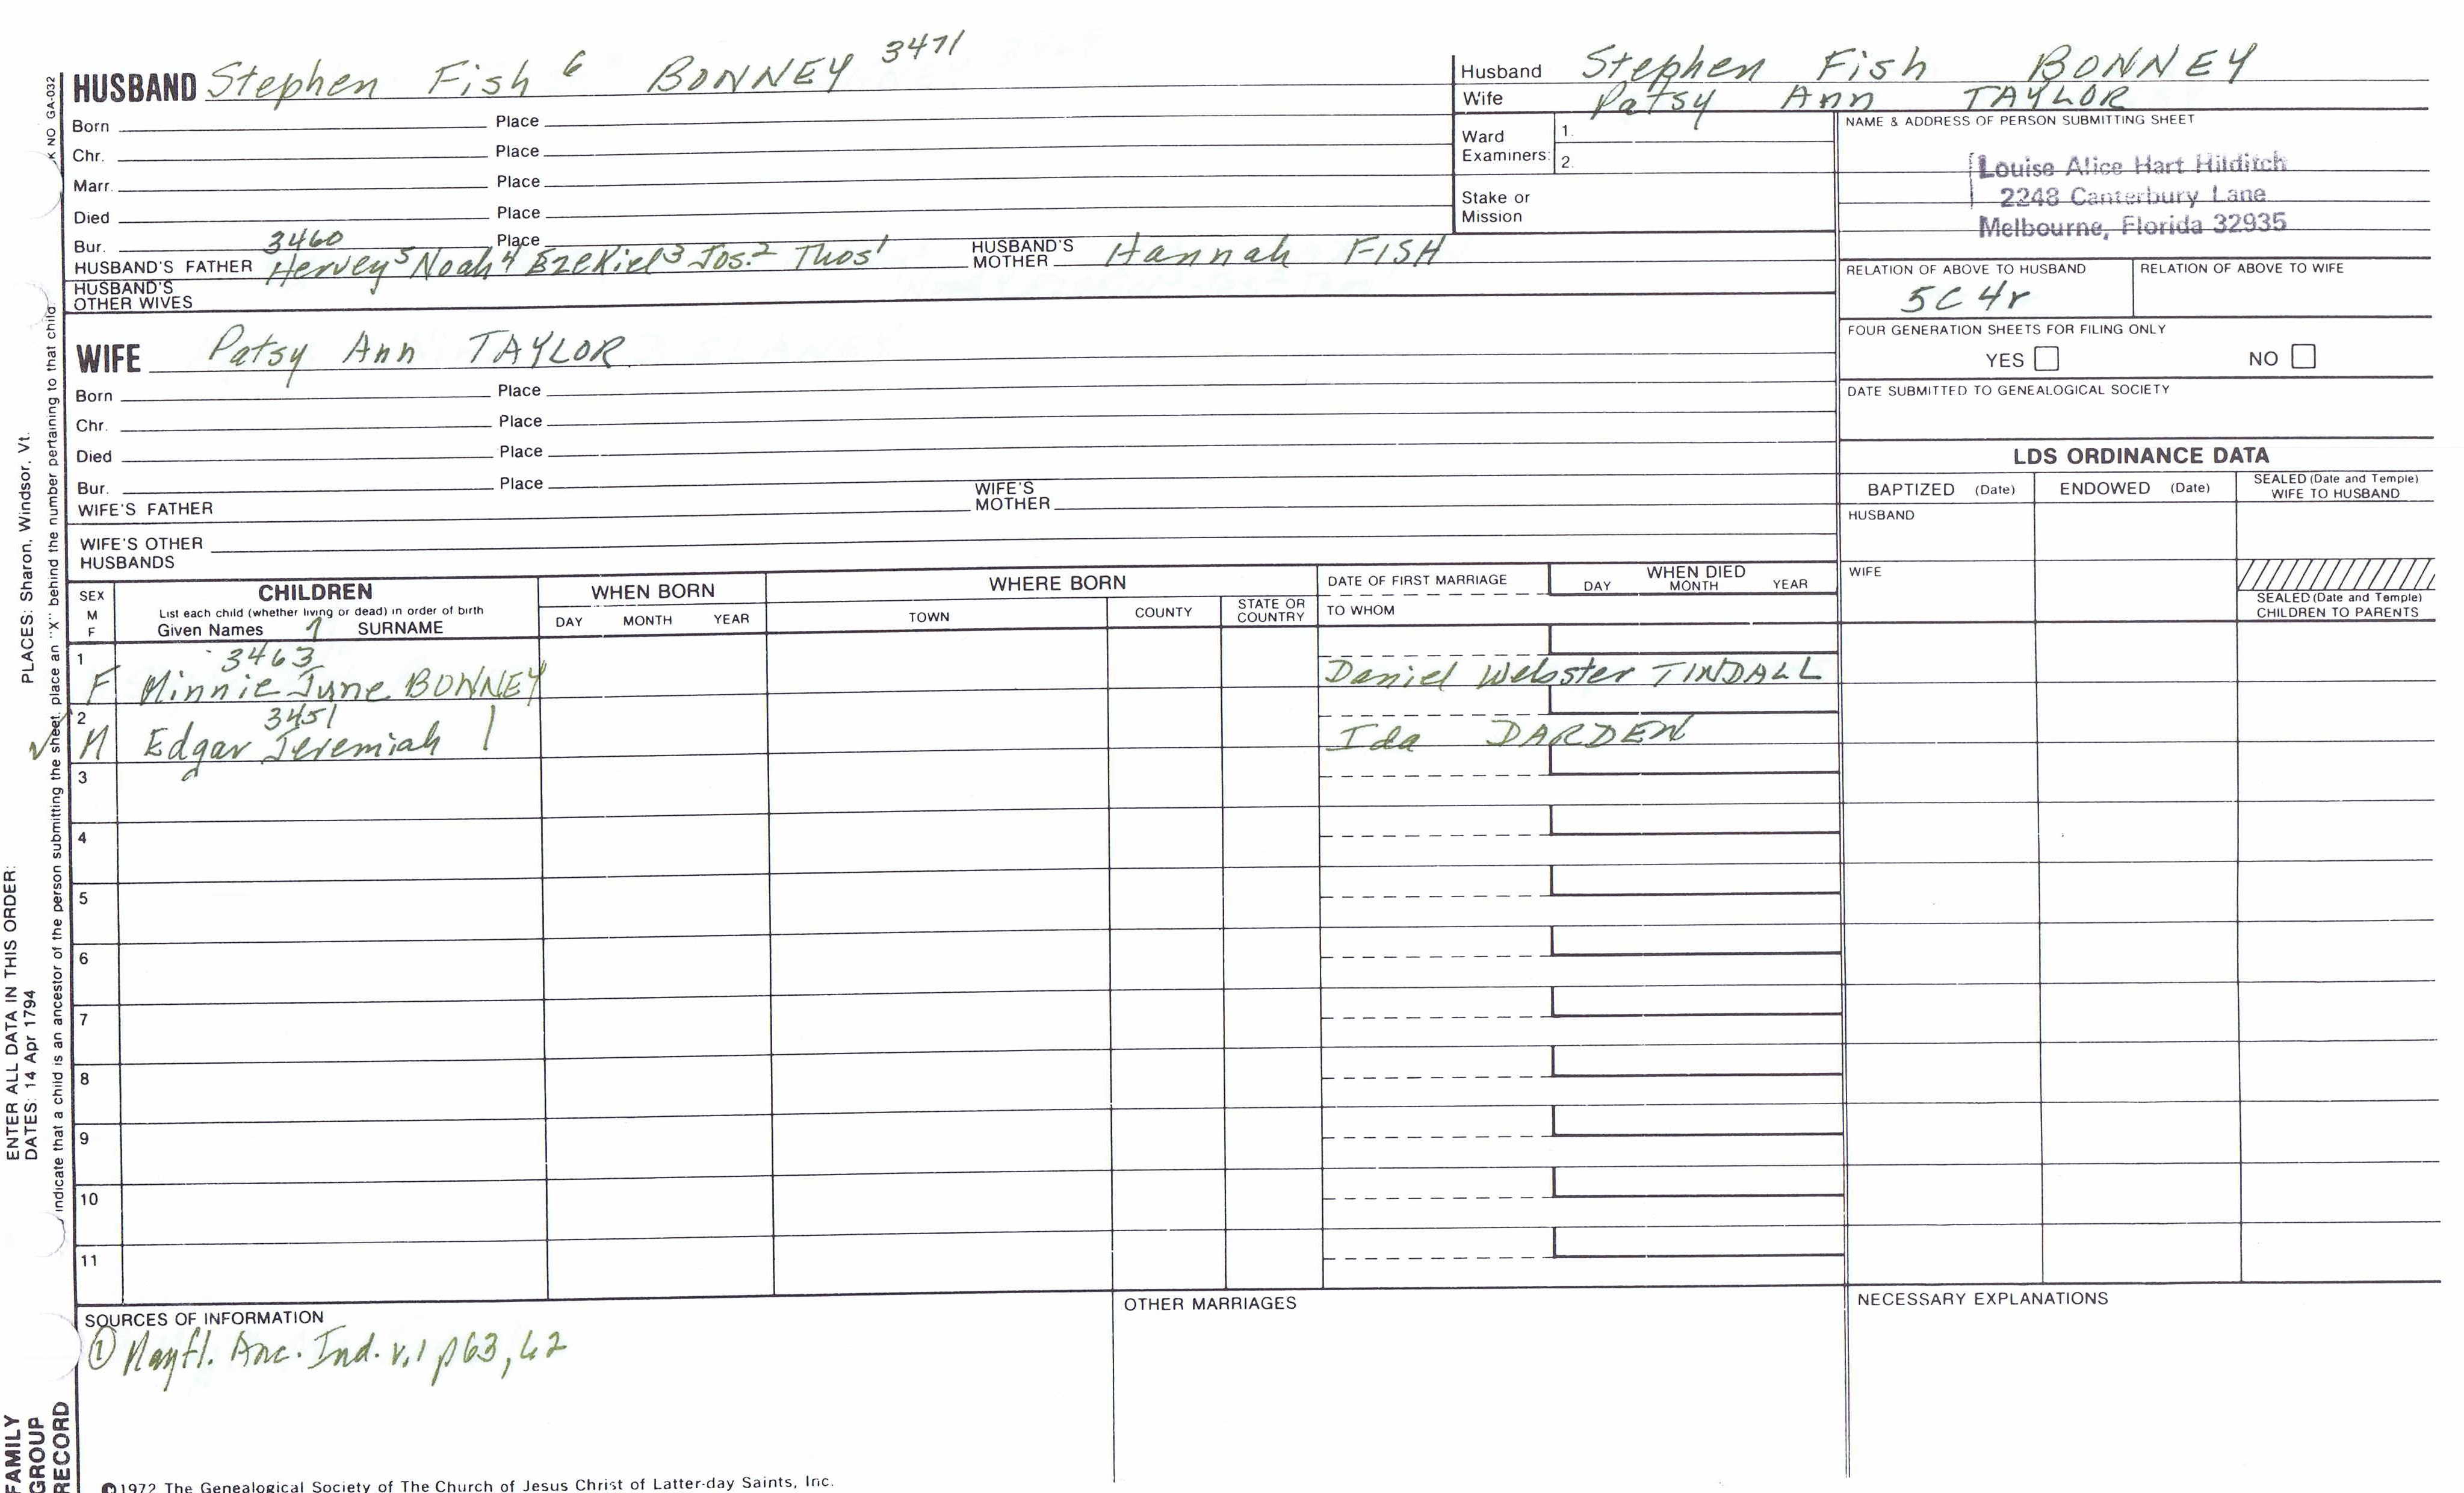 HUSBAND Stephen Fish 6 BONNEY 3471
Born Place
Chr. Place
Marr. Place
Died Place
Bur. Place
3460
HUSBAND'S FATHER Hervey5 Noah4 Ezekiel3 Jos.2 Thos1 HUSBAND'S MOTHER Hannah FISH
HUSBAND'S OTHER WIVES
WIFE Patsy Ann TAYLOR
Born Place
Chr. Place
Died Place
Bur. Place
WIFE'S FATHER WIFE'S MOTHER
WIFE'S OTHER HUSBANDS
Husband Stephen Fish BONNEY
Wife Patsy Ann TAYLOR
Ward Examiners: 1.
2.
Stake or Mission
NAME & ADDRESS OF PERSON SUBMITTING SHEET
Louise Alice Hart Hilditch
2248 Canterbury Lane
Melbourne, Florida 32935
RELATION OF ABOVE TO HUSBAND RELATION OF ABOVE TO WIFE
5C 4r
FOUR GENERATION SHEETS FOR FILING ONLY
YES NO
DATE SUBMITTED TO GENEALOGICAL SOCIETY
LDS ORDINANCE DATA
BAPTIZED (Date) ENDOWED (Date) SEALED (Date and Temple) WIFE TO HUSBAND
HUSBAND
WIFE
SEALED (Date and Temple) CHILDREN TO PARENTS
SEX M F
CHILDREN
List each child (whether living or dead) in order of birth
Given Names 7 SURNAME
WHEN BORN
DAY MONTH YEAR
WHERE BORN
TOWN COUNTY STATE OR COUNTRY
DATE OF FIRST MARRIAGE
TO WHOM
WHEN DIED
DAY MONTH YEAR
1 3463
F Minnie June BONNEY Daniel Webster TINDALL
2 3451
M Edgar Jeremiah | Ida DARDEN
3
4
5
6
7
8
9
10
11
SOURCES OF INFORMATION
① Mayfl. Anc. Ind. v.1 p63, 62
OTHER MARRIAGES
NECESSARY EXPLANATIONS
©1972 The Genealogical Society of The Church of Jesus Christ of Latter-day Saints, Inc.
K NO GA-032
indicate that a child is an ancestor of the person submitting the sheet, place an "X" behind the number pertaining to that child
ENTER ALL DATA IN THIS ORDER:
DATES: 14 Apr 1794 PLACES: Sharon, Windsor, Vt.
FAMILY
GROUP
RECORD